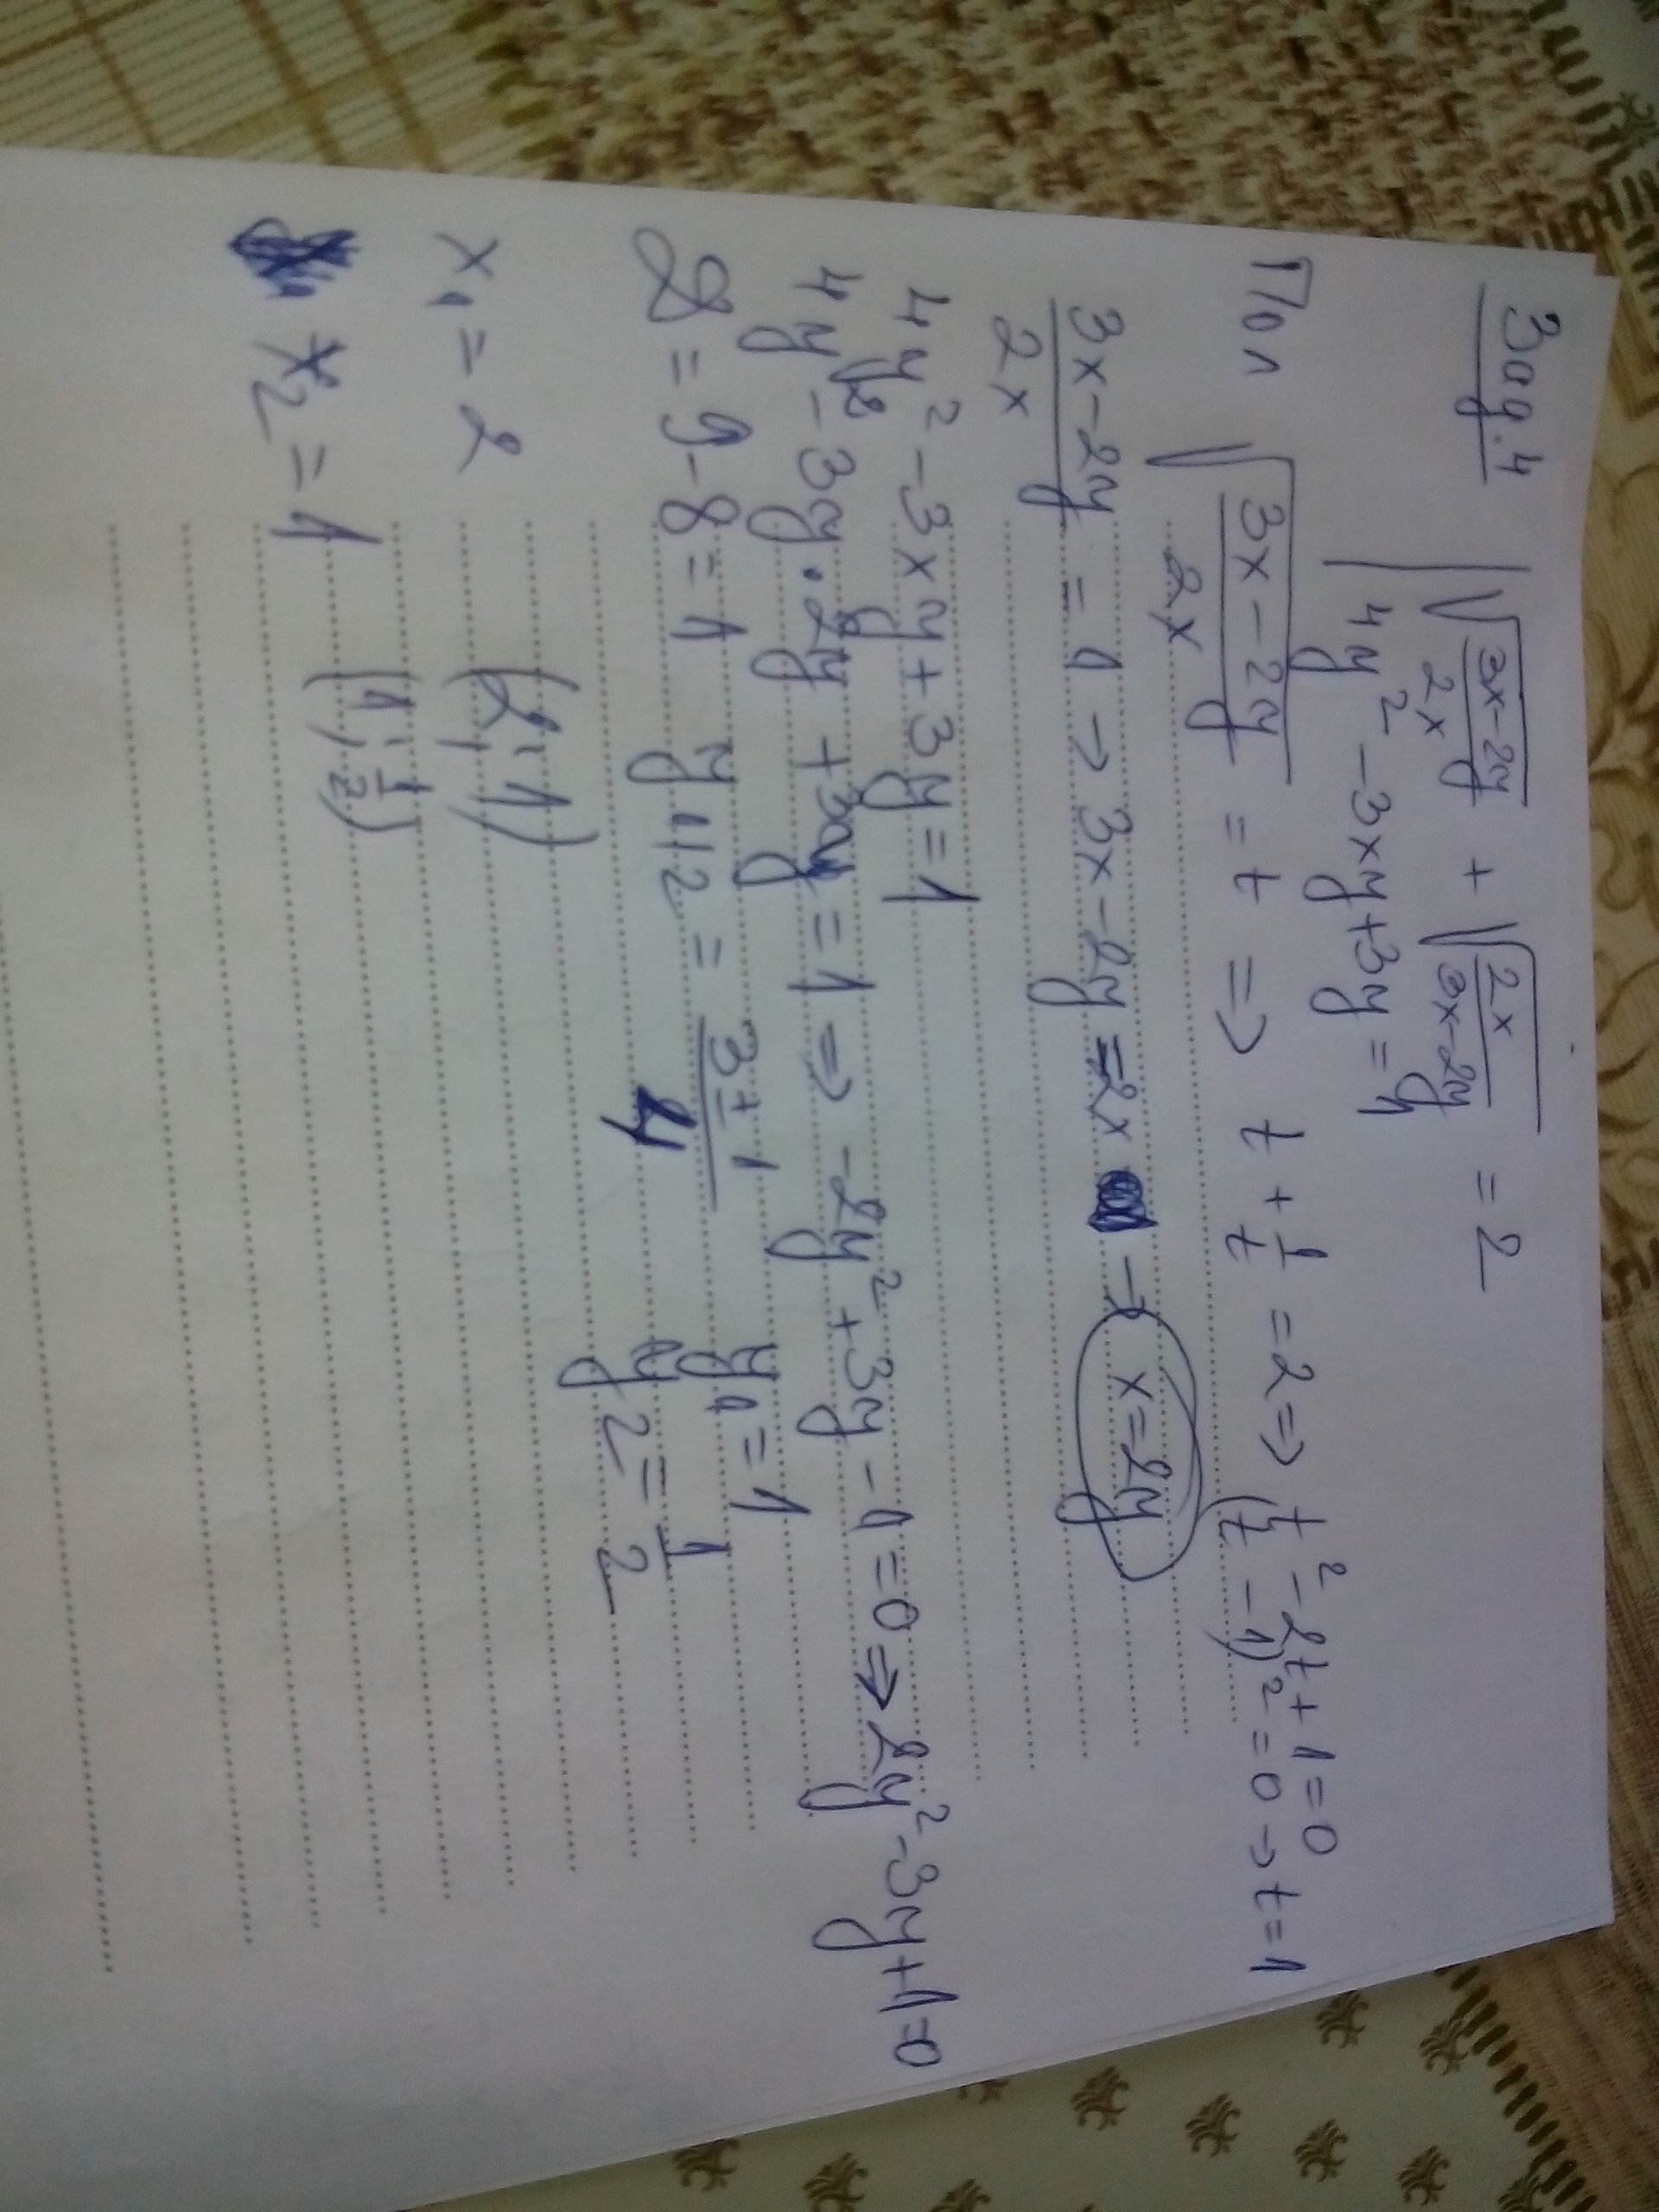 Заg.4
| √(3x-2y)/2x + √2x/(3x-2y) = 2
4y² - 3xy + 3y = 1
Пол √(3x-2y)/2x = t => t + 1/t = 2 => t² - 2t + 1 = 0
(t - 1)² = 0 → t = 1
(3x-2y)/2x = 1 → 3x - 2y = 2x → x = 2y
4y² - 3xy + 3y = 1
4y² - 3y·2y + 3y = 1 => -2y² + 3y - 1 = 0 => 2y² - 3y + 1 = 0
D = 9 - 8 = 1 y1,2 = (3±1)/4 y1 = 1
y2 = 1/2
x1 = 2 (2; 1)
x2 = 1 (1; 1/2)